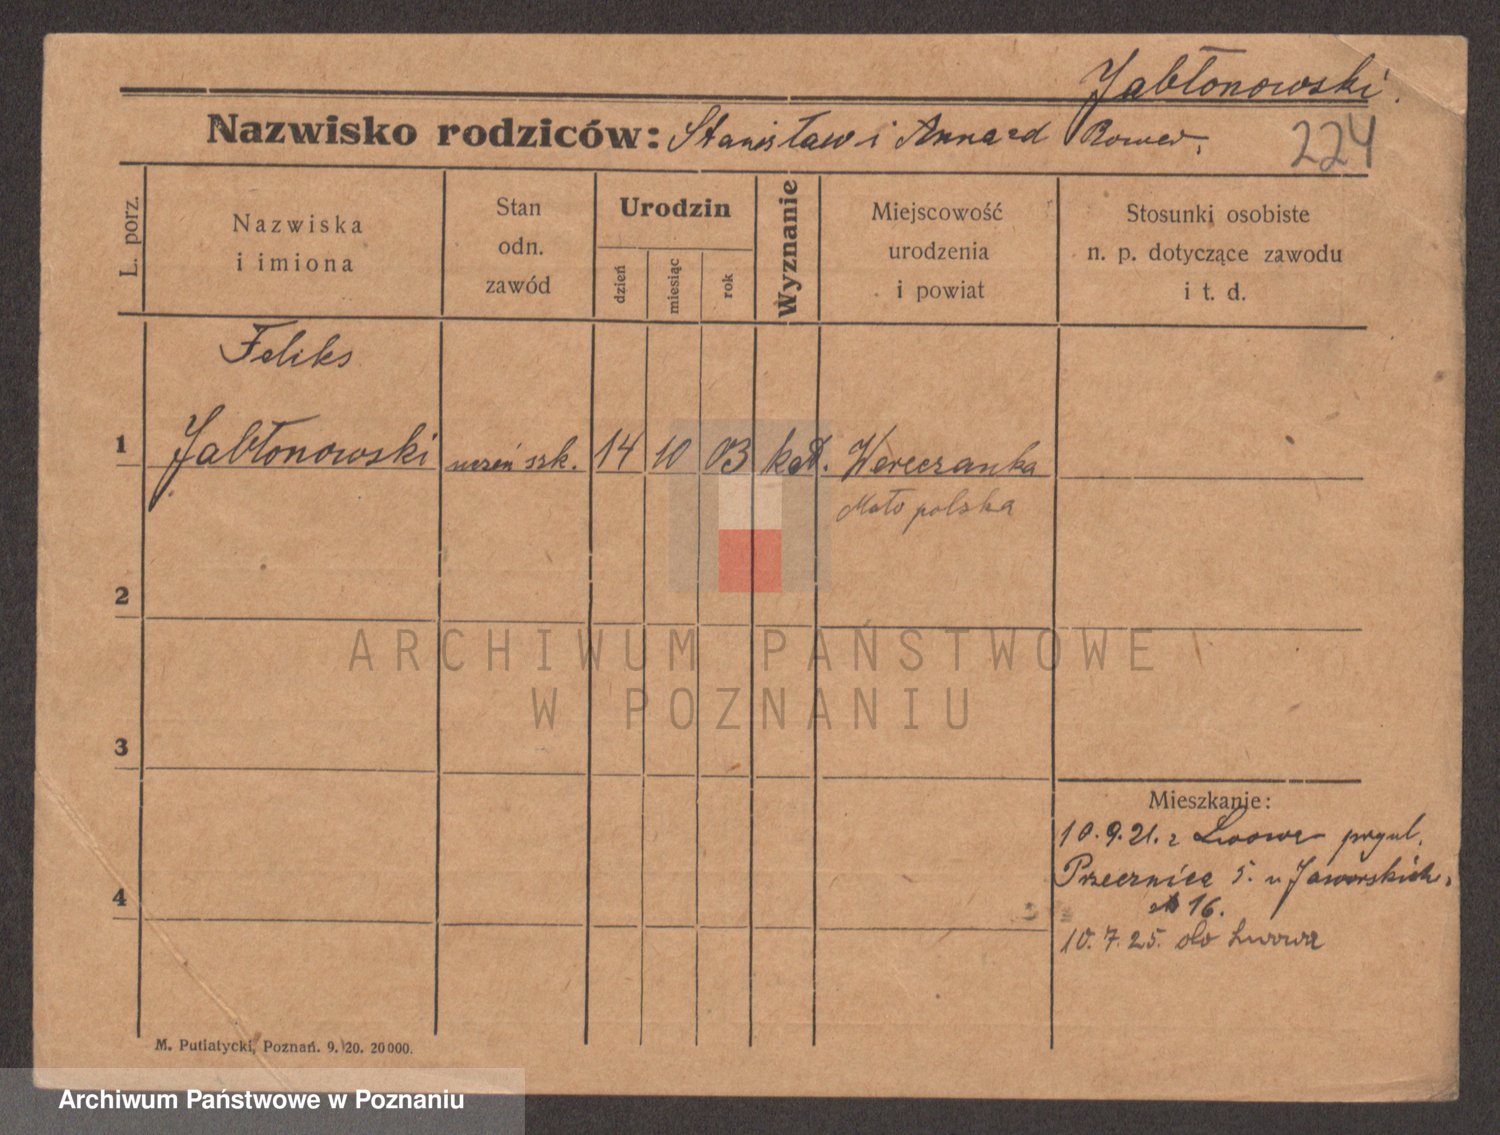 Jabłonowski.
Nazwisko rodziców: Stanisław i Anna zd
224
L. porz.
Nazwiska
i imiona
Stan
odn.
zawód
Urodzin
dzień
miesiąc
rok
Wyznanie
Miejscowość
urodzenia
i powiat
Stosunki osobiste
n. p. dotyczące zawodu
i t. d.
Feliks
1 Jabłonowski uczeń szk. 14 10 03 kat. Wereczanka
Małopolska
2
ARCHIWUM PAŃSTWOWE
W POZNANIU
3
Mieszkanie:
10.9.21. z Lwowa
Przecznica 5. u Jaworskich.
4
16.
10.7.25. do Lwowa
M. Putiatycki, Poznań. 9. 20. 20000.
Archiwum Państwowe w Poznaniu